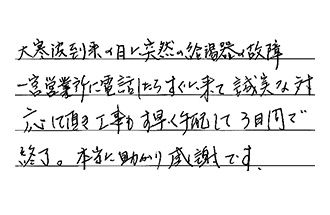 大寒波到来の日に突然の給湯器の故障
一宮営業所に電話したらすぐに来て誠実な対
応して頂き工事も素早く手配して3日間で
終了。本当に助かり感謝です。